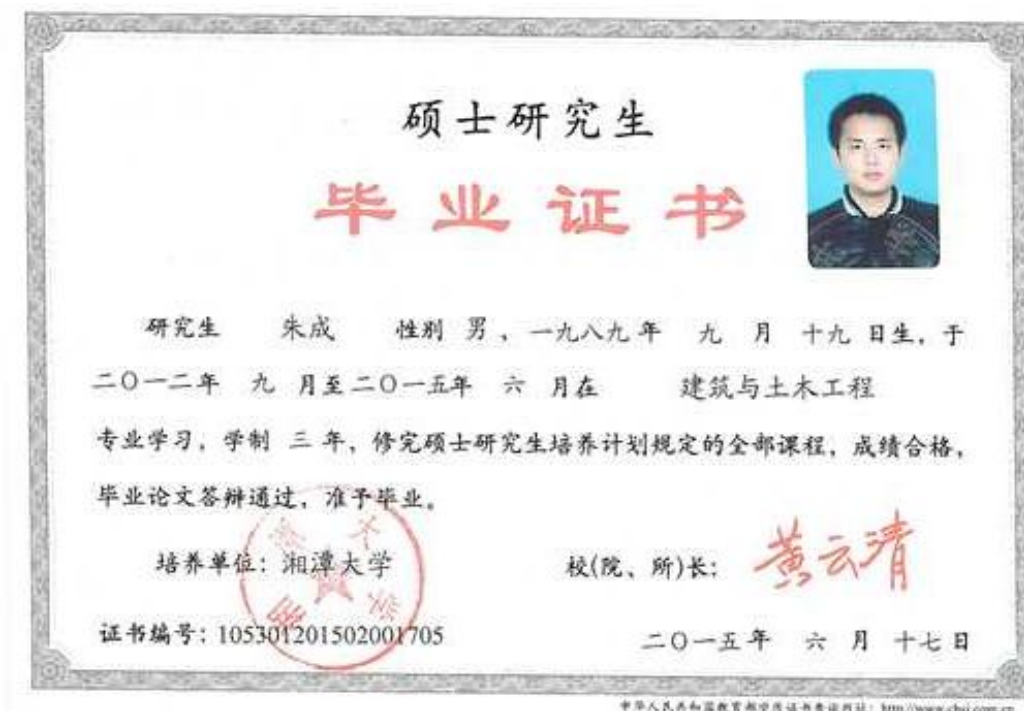 硕士研究生
毕业证书
研究生 朱成 性别 男 ，一九八九年 九 月 十九 日生，于
二〇一二年 九 月至二〇一五年 六 月在 建筑与土木工程
专业学习，学制 三 年，修完硕士研究生培养计划规定的全部课程，成绩合格，
毕业论文答辩通过，准予毕业。
培养单位：湘潭大学 校(院、所)长： 黄云清
湘潭大学
证书编号：105301201502001705 二〇一五年 六 月 十七 日
中华人民共和国教育部学历证书查询网址：http://www.chsi.com.cn